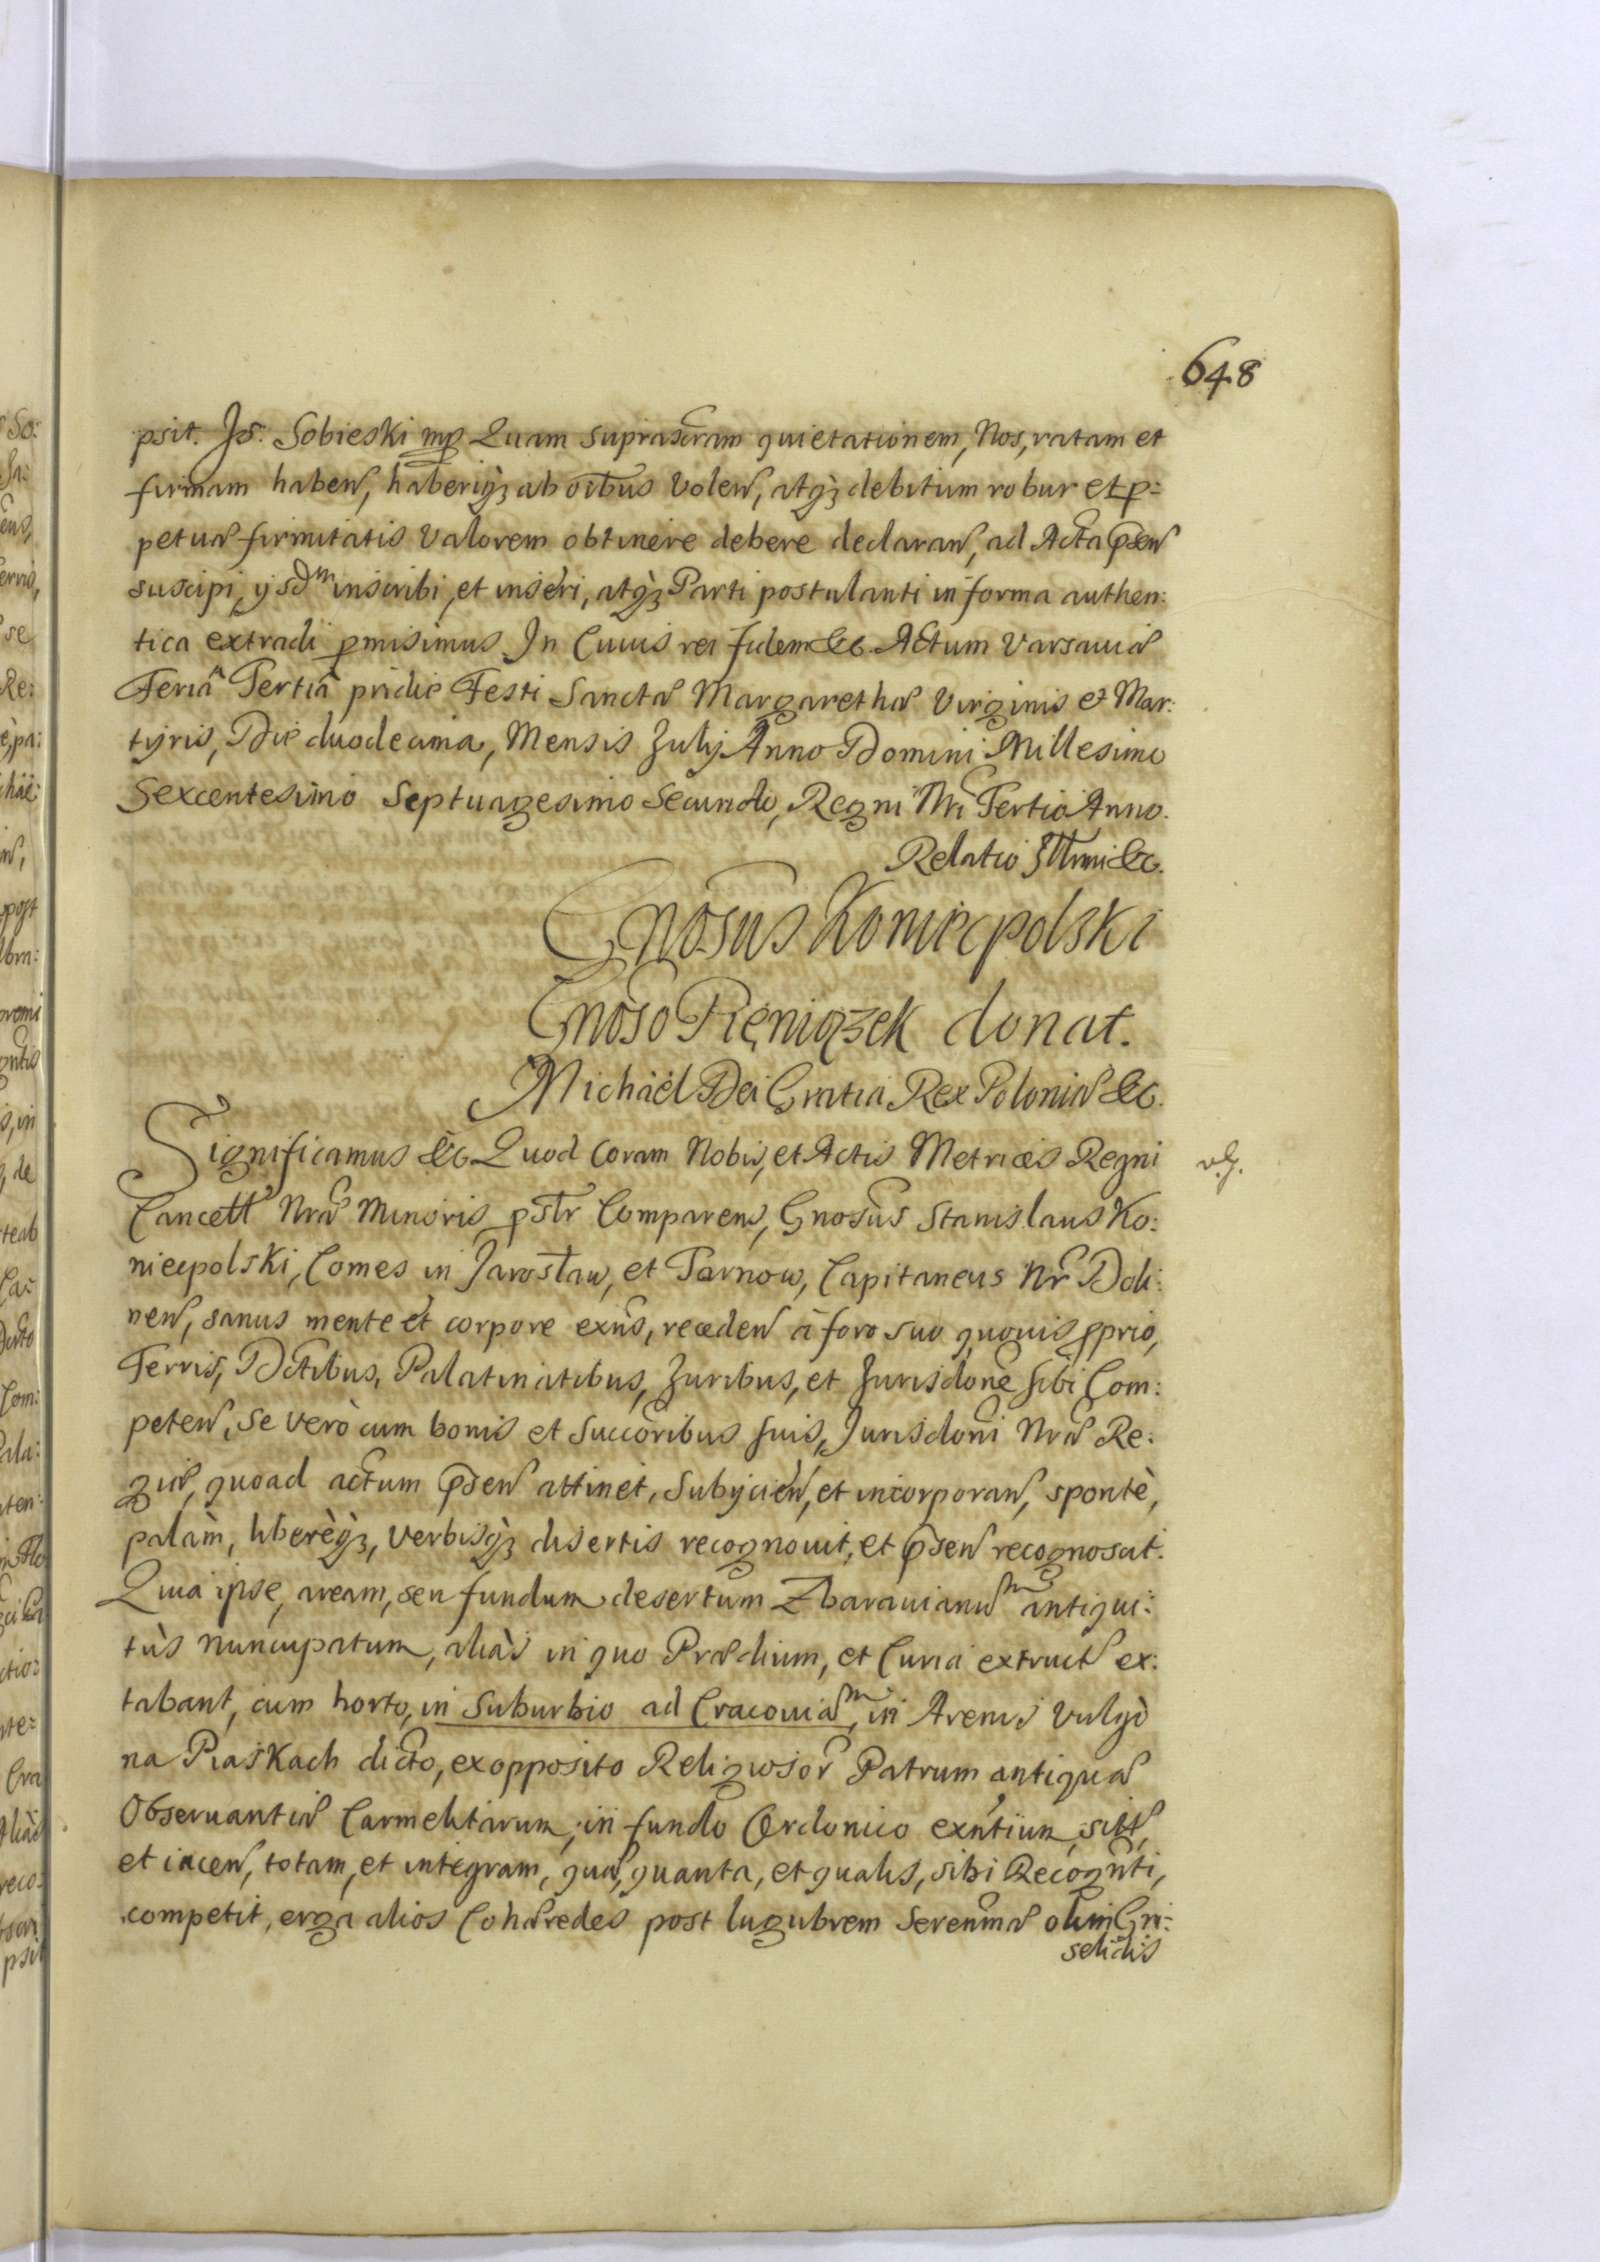 648
psit. Js. Sobieski mp Quam suprascram quietationem, Nos, ratam et
firmam haben, haberiqȝ ab oibus volen, atqȝ debitum robur et p=
petuæ firmitatis valorem obtinere debere declaran, ad Acta psen
suscipi, ysdm inscribi, et inseri, atqȝ Parti postulanti in forma authen:
tica extradi pmisimus In Cuius rei fidem &c. Actum Varsaviæ
Feriâ Tertiâ pridie Festi Sanctæ Margarethæ Virginis et Mar:
tyris, Die duodecima, Mensis July Anno Domini Millesimo
Sexcentesimo Septuagesimo Secundo, Regni Nri Tertio Anno.
Relatio Illmi &c.
Gnosus Koniecpolski
Gnoso Pieniązek donat.
Michaël Dei Gratia Rex Poloniæ &c.
Significamus &c. Quod coram Nobis, et Actis Metrices Regni
Cancell Nræ Minoris pslr Comparens, Gnosus Stanislaus Ko:
niecpolski, Comes in Jarosław, et Tarnow, Capitaneus Nr Doli:
nen, sanus mente et corpore exns, receden à foro suo quovis pprio,
Terris, Dctibus, Palatinatibus, Juribus, et Jurisdone sibi Com:
peten, se verò cum bonis et succoribus suis, Jurisdoni Nræ Re:
giæ, quoad actum psen attinet, subycien, et incorporan, spontè,
palàm, liberèqȝ, verbisqȝ disertis recognovit, et psen recognoscit.
Quia ipse, aream, seu fundum desertum Zbaravianum antiqui:
tùs nuncupatum, aliàs in quo Prædium, et Curia extruct ex:
tabant, cum horto, in Suburbio ad Cracoviam, in Arenis vulgò
na Piaskach dicto, ex opposito Religiosor Patrum antiquæ
Observantiæ Carmelitarum, in fundo Cerdonico exntium, sitt,
et iacen, totam, et integram, quæ, quanta, et qualis, sibi Recognti,
competit, erga alios Cohæredes post lugubrem Serenmæ olim Gri:
seldis